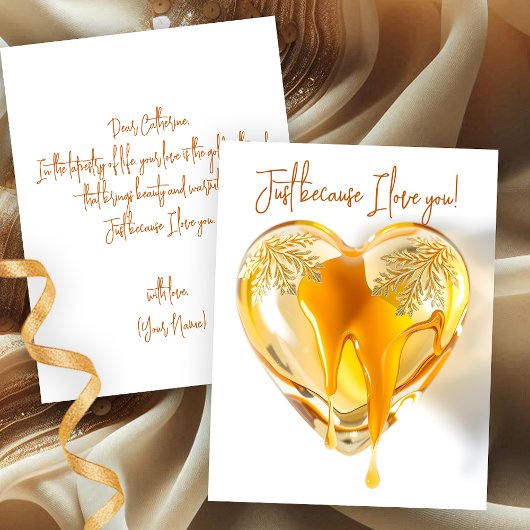 Dear Catherine,
In the tapestry of life, your love is the
that brings beauty and
Just because I love you.
with love,
(Your Name)
Just because I love you!